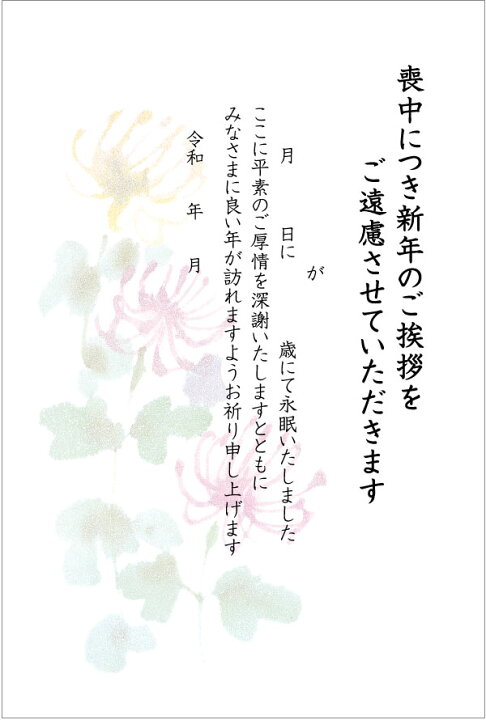 喪中につき新年のご挨拶を
ご遠慮させていただきます
月　　日に　　が　　歳にて永眠いたしました
ここに平素のご厚情を深謝いたしますとともに
みなさまに良い年が訪れますようお祈り申し上げます
令和　年　月